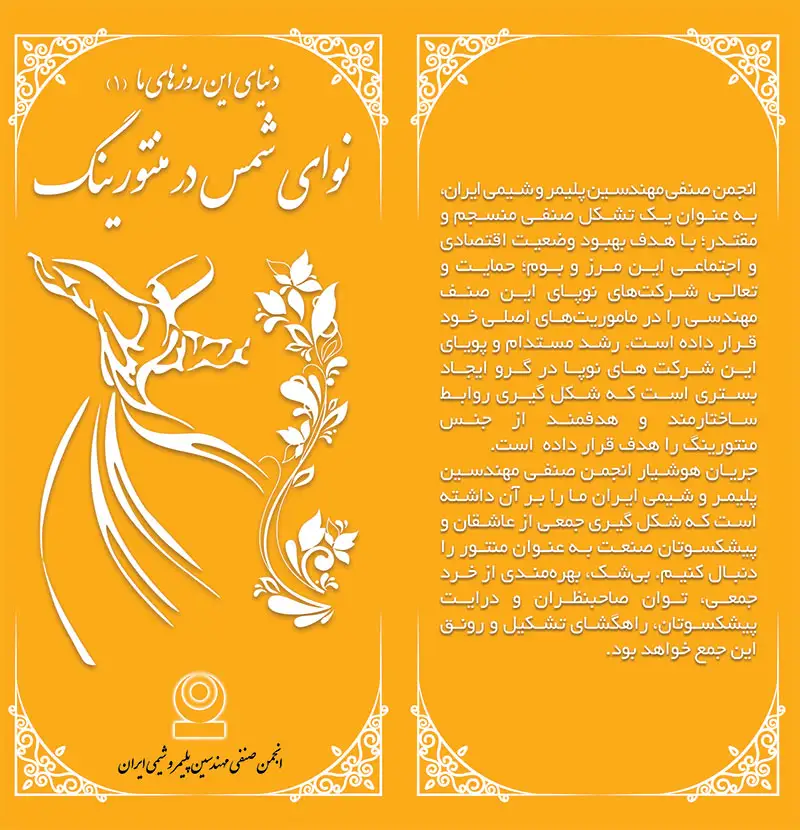 دنیای این روزهای ما (۱)
نوای شمس در منتورینگ
انجمن صنفی مهندسین پلیمر و شیمی ایران
انجمن صنفی مهندسین پلیمر و شیمی ایران،
به عنوان یک تشکل صنفی منسجم و
مقتدر؛ با هدف بهبود وضعیت اقتصادی
و اجتماعی این مرز و بوم؛ حمایت و
تعالی شرکت‌های نوپای این صنف
مهندسی را در ماموریت‌های اصلی خود
قرار داده است. رشد مستدام و پویای
این شرکت های نوپا در گرو ایجاد
بستری است که شکل گیری روابط
ساختارمند و هدفمند از جنس
منتورینگ را هدف قرار داده است.
جریان هوشیار انجمن صنفی مهندسین
پلیمر و شیمی ایران ما را بر آن داشته
است که شکل گیری جمعی از عاشقان و
پیشکسوتان صنعت به عنوان منتور را
دنبال کنیم. بی‌شک، بهره‌مندی از خرد
جمعی، توان صاحبنظران و درایت
پیشکسوتان، راهگشای تشکیل و رونق
این جمع خواهد بود.